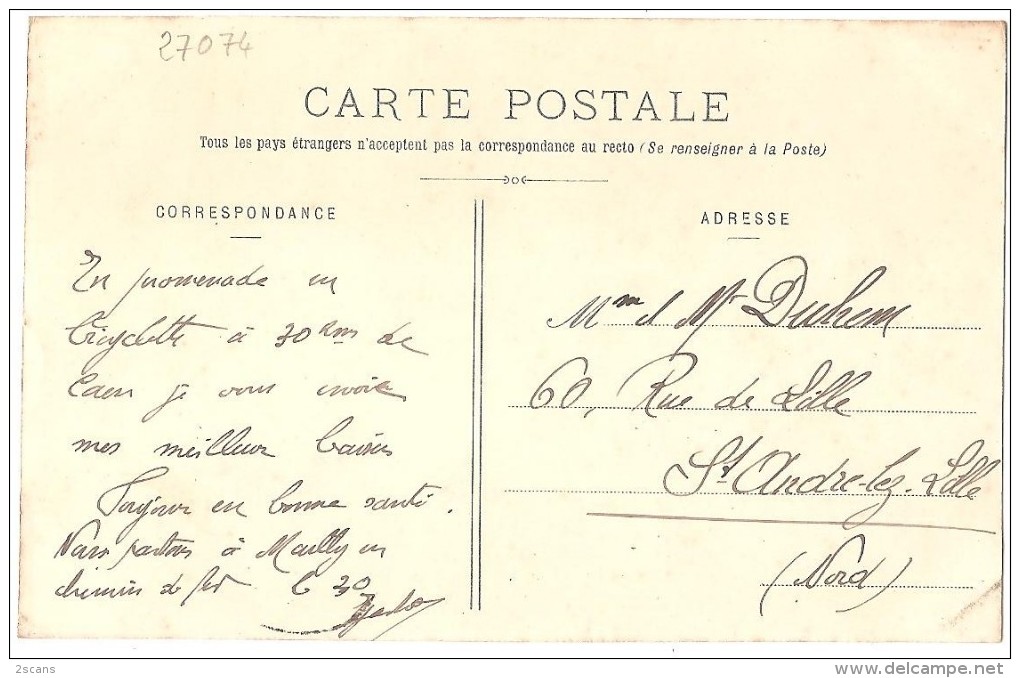 27074
CARTE POSTALE
Tous les pays étrangers n'acceptent pas la correspondance au recto (Se renseigner à la Poste)
CORRESPONDANCE
En promenade en
bicyclette à 30 kms de
Caen je vous envoie
mes meilleur baisers
Toujour en bonne santé.
Nous partons à Mailly en
chemin de fer le 30
ADRESSE
Mme et Mr Duhem
60, Rue de Lille
St André-lez-Lille
(Nord)
2scans
www.delcampe.net